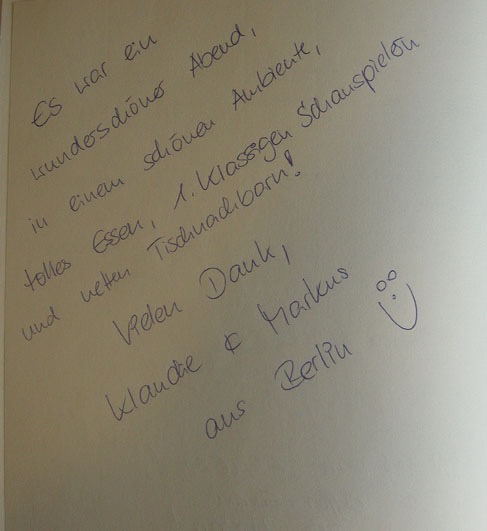 Es war ein
wunderschöner Abend,
in einem schönen Ambiente,
tolles Essen, 1. Klassigen Schauspielern
und netten Tischnachbarn!
Vielen Dank,
Klaudia & Markus
aus Berlin